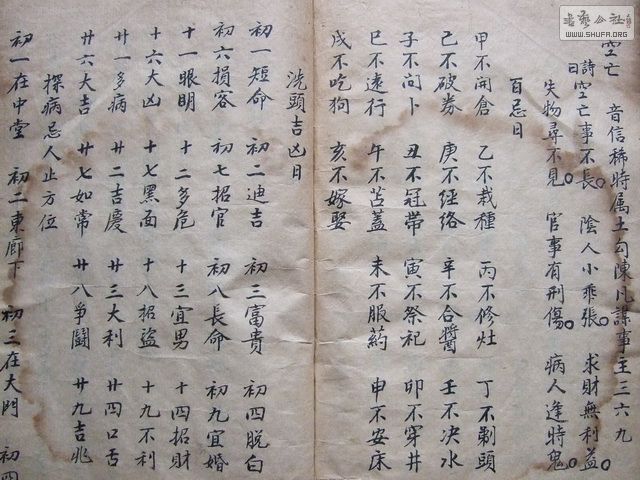 书艺公社
WWW.SHUFA.ORG
空亡 音信稀時属土勾陳凡謀事主三六九
詩曰 空亡事不長。 陰人小乖張。 求財無利益。
失物尋不見。 官事有刑傷。 病人逢時鬼。
百忌日
甲不開倉 乙不栽種 丙不修灶 丁不剃頭
己不破券 庚不經絡 辛不合醬 壬不决水
子不问卜 丑不冠帶 寅不祭祀 卯不穿井
巳不遠行 午不苫蓋 未不服药 申不安床
戌不吃狗 亥不嫁娶
洗頭吉凶日
初一短命 初二迪吉 初三富貴 初四脱白
初六損容 初七招官 初八長命 初九宜婚
十一眼明 十二多危 十三宜男 十四招財
十六大凶 十七黑面 十八招盜 十九不利
廿一多病 廿二吉慶 廿三大利 廿四口舌
廿六大吉 廿七如常 廿八爭鬪 廿九吉兆
探病忌人止方位
初一在中堂 初二東廊下 初三在大門 初四